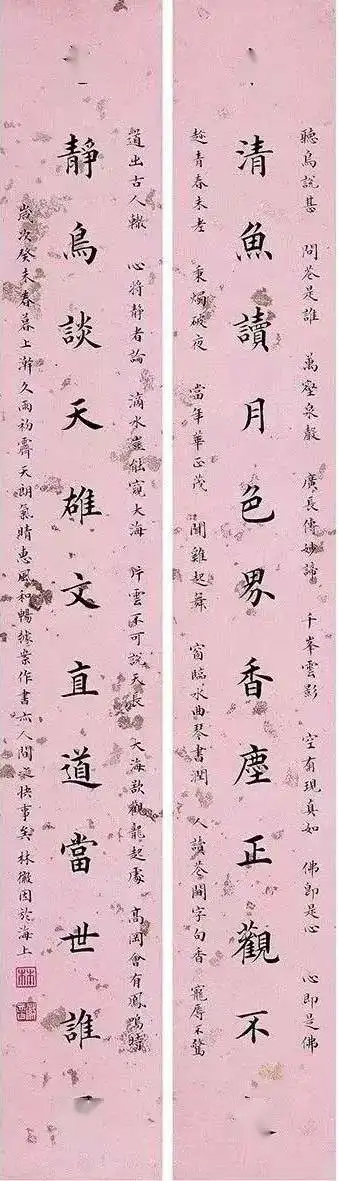 聽鳥說甚 問花是誰 萬壑泉聲 廣長傳妙諦 千峯雲影 空有現真如 佛即是心 心即是佛
清魚讀月色界香塵正觀不
趁青春未老 秉燭破夜 當年華正茂 聞雞起舞 窗臨水曲琴書潤 人讀花間字句香 寵辱不驚
道出古人轍 心將靜者論 滴水豈能窺大海 片雲不可說天長 大海欲觀龍起處 高岡會有鳳鳴時
靜鳥談天雄文直道當世誰
歲次癸未春暮上澣久雨初霽天朗氣晴惠風和暢據案作書亦人間快事矣 林徽因於海上